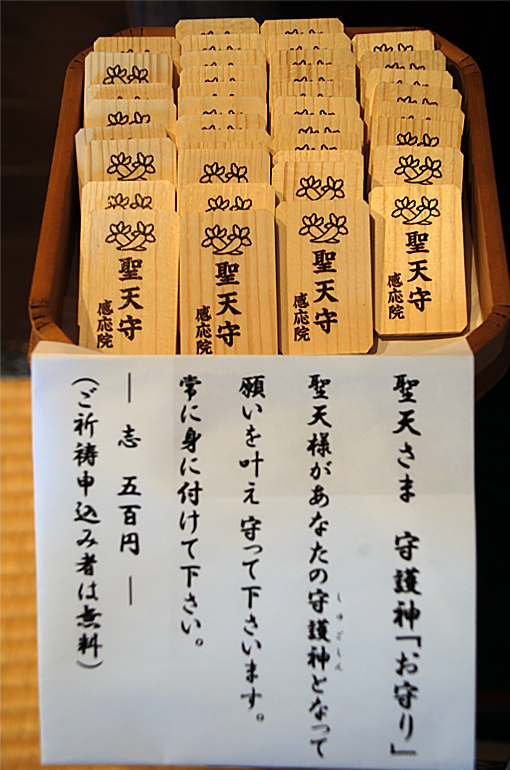 聖天守
感応院
聖天守
感応院
聖天守
感応院
聖天守
感応院
聖天さま 守護神「お守り」
聖天様があなたの守護神となって
しゅごしん
願いを叶え 守って下さいます。
常に身に付けて下さい。
― 志 五百円 ―
(ご祈祷申込み者は無料)